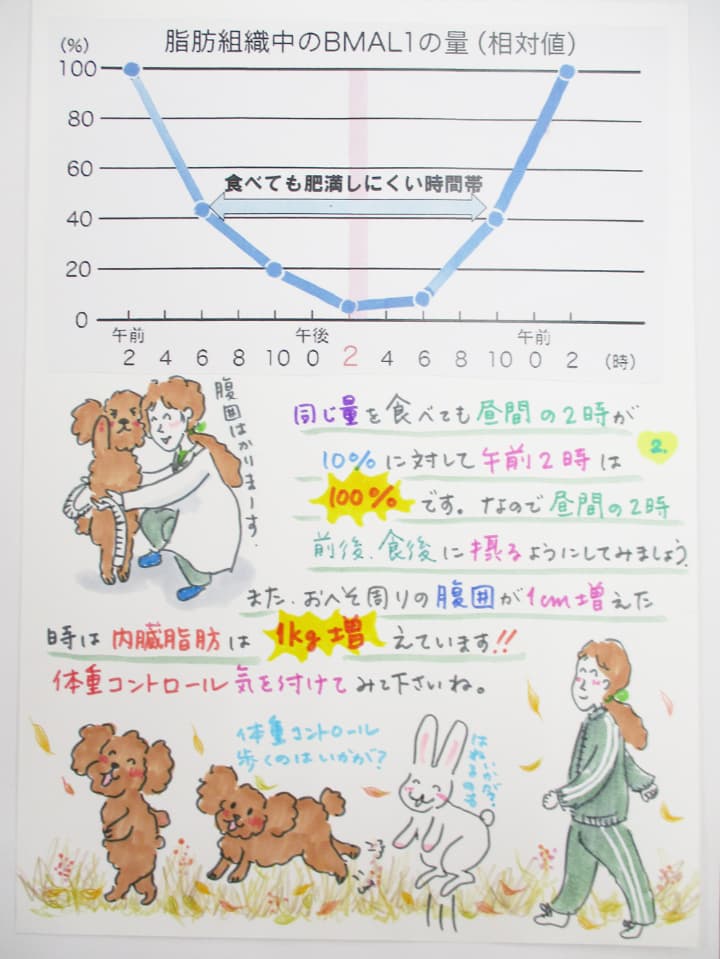 脂肪組織中のBMAL1の量(相対値)
(%)
100
80
60
40
20
0
食べても肥満しにくい時間帯
午前 午後 午前
2 4 6 8 10 0 2 4 6 8 10 0 2 (時)
腹囲はかりまーす.
同じ量を食べても昼間の2時が
2.
10%に対して午前2時は
100%です。なので昼間の2時
前後、食後に摂るようにしてみましょう.
また、おへそ周りの腹囲が1cm増えた
時は内臓脂肪は1kg増えています!!
体重コントロール気を付けてみて下さいね。
体重コントロール
歩くのはいかが?
はねるのも
いかが?